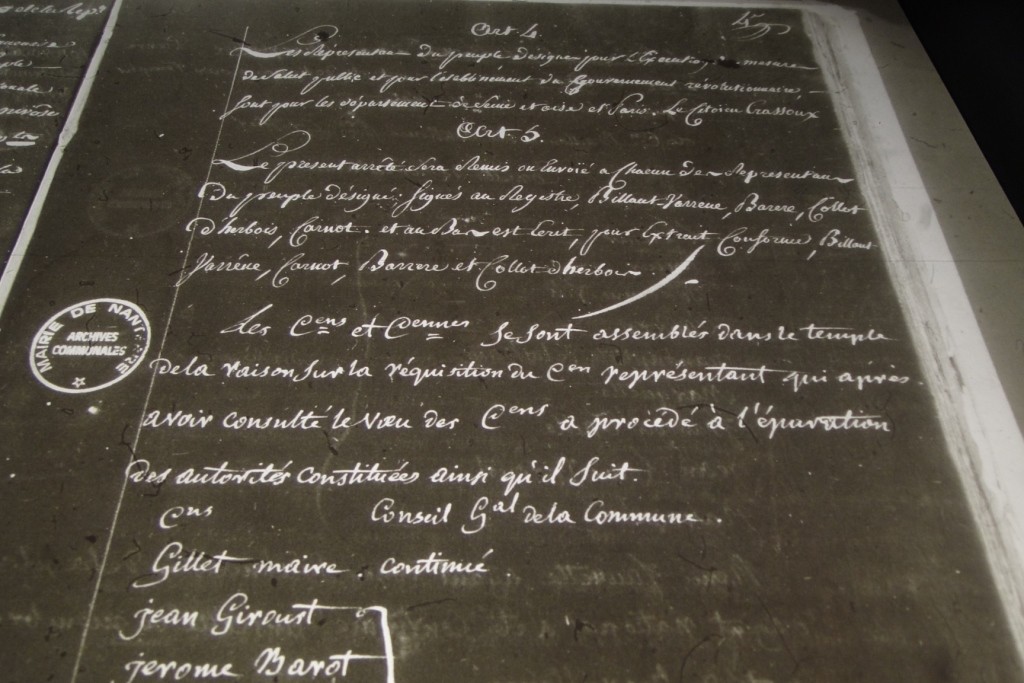 Art 4.
Les Représentans du peuple désigné pour l'Execution mesure
de Salut public et pour l'etablissement du Gouvernement révolutionnaire
sont pour les départements de Seine et oise et Paris. Le Citoien Crassoux
Art 5.
Le present arrêté Sera Remis ou Envoïé a chacun des Representans
du peuple désigné. Signés au Registre, Billaut-Varrene, Barere, Collot
d'herbois, Carnot. et au Bas est Ecrit, pour Extrait Conforme, Billaut-
Varrène, Carnot, Barrere et Collot d'herbois
Les Cens et Cennes se sont assemblés dans le temple
de la raison, sur la réquisition du Cen représentant qui après
avoir consulté le vœu des Cens a procédé à l'épuration
des autorités constituées ainsi qu'il suit.
Cens Conseil Gal de la Commune.
Gillet maire. continué
jean Giroust
jerome Barot
MAIRIE DE NANTERRE
ARCHIVES
COMMUNALES